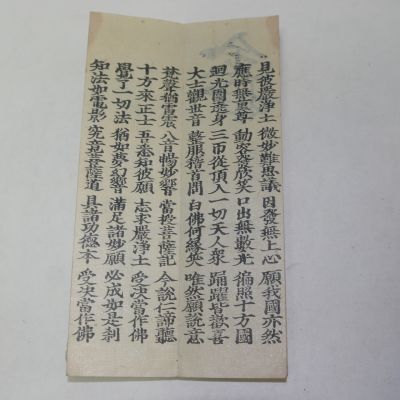 見彼嚴淨土 微妙難思議 因發無上心 願我國亦然
應時無量尊 動容發欣笑 口出無數光 徧照十方國
迴光圍遶身 三帀從頂入 一切天人衆 踊躍皆歡喜
大士觀世音 整服稽首問 白佛何緣笑 唯然願說意
梵聲猶雷震 八音暢妙響 當授菩薩記 今說仁諦聽
十方來正士 吾悉知彼願 志求嚴淨土 受決當作佛
覺了一切法 猶如夢幻響 滿足諸妙願 必成如是剎
知法如電影 究竟菩薩道 具諸功德本 受決當作佛